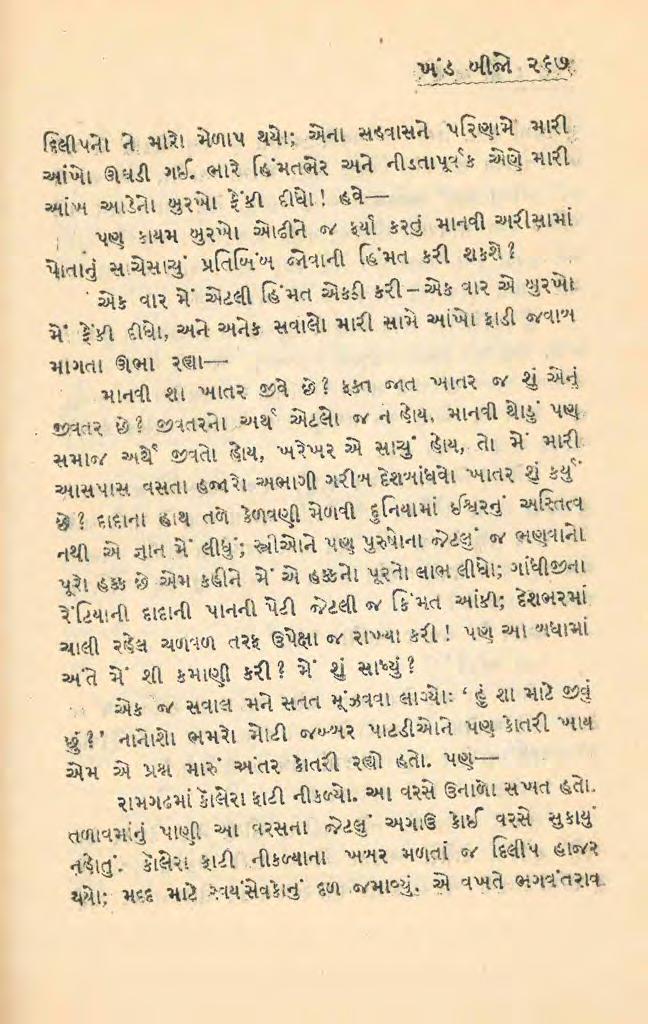 ખંડ બીજો ૨૬૭
દિલીપનો ને મારો મેળાપ થયો; એના સહવાસને પરિણામે મારી
આંખો ઊઘડી ગઈ. ભારે હિંમતભેર અને નીડતાપૂર્વક એણે મારી
આંખ આડેનો બુરખો ફેંકી દીધો! હવે—
પણ કાયમ બુરખો ઓઢીને જ ફર્યા કરતું માનવી અરીસામાં
પોતાનું સાચેસાચું પ્રતિબિંબ જોવાની હિંમત કરી શકશે?
એક વાર મેં એટલી હિંમત એકઠી કરી – એક વાર એ બુરખો
મેં ફેંકી દીધો, અને અનેક સવાલો મારી સામે આંખો ફાડી જવાબ
માગતા ઊભા રહ્યા—
માનવી શા ખાતર જીવે છે? ફક્ત જાત ખાતર જ શું એનું
જીવતર છે? જીવતરનો અર્થ એટલો જ ન હોય. માનવી થોડું પણ
સમાજ અર્થે જીવતો હોય, ખરેખર એ સાચું હોય, તો મેં મારી
આસપાસ વસતા હજારો અભાગી ગરીબ દેશબાંધવો ખાતર શું કર્યું
છે? દાદાના હાથ તળે કેળવણી મેળવી દુનિયામાં ઈશ્વરનું અસ્તિત્વ
નથી એ જ્ઞાન મેં લીધું; સ્ત્રીઓને પણ પુરુષોના જેટલું જ ભણવાનો
પૂરો હક્ક છે એમ કહીને મેં એ હક્કનો પૂરતો લાભ લીધો; ગાંધીજીના
રેંટિયાની દાદાની પાનની પેટી જેટલી જ કિંમત આંકી; દેશભરમાં
ચાલી રહેલ ચળવળ તરફ ઉપેક્ષા જ રાખ્યા કરી! પણ આ બધામાં
અંતે મેં શી કમાણી કરી? મેં શું સાધ્યું?
એક જ સવાલ મને સતત મૂંઝવવા લાગ્યો: ‘હું શા માટે જીવું
છું?’ નાનોશો ભમરો મોટી જબ્બર પાટડીઓને પણ કોતરી ખાય
એમ એ પ્રશ્ન મારું અંતર કોતરી રહ્યો હતો. પણ—
રામગઢમાં કૉલેરા ફાટી નીકળ્યો. આ વરસે ઉનાળો સખત હતો.
તળાવમાંનું પાણી આ વરસના જેટલું અગાઉ કોઈ વરસે સુકાયું
નહોતું. કૉલેરા ફાટી નીકળ્યાના ખબર મળતાં જ દિલીપ હાજર
થયો; મદદ માટે સ્વયંસેવકોનું દળ જમાવ્યું. એ વખતે ભગવંતરાવ